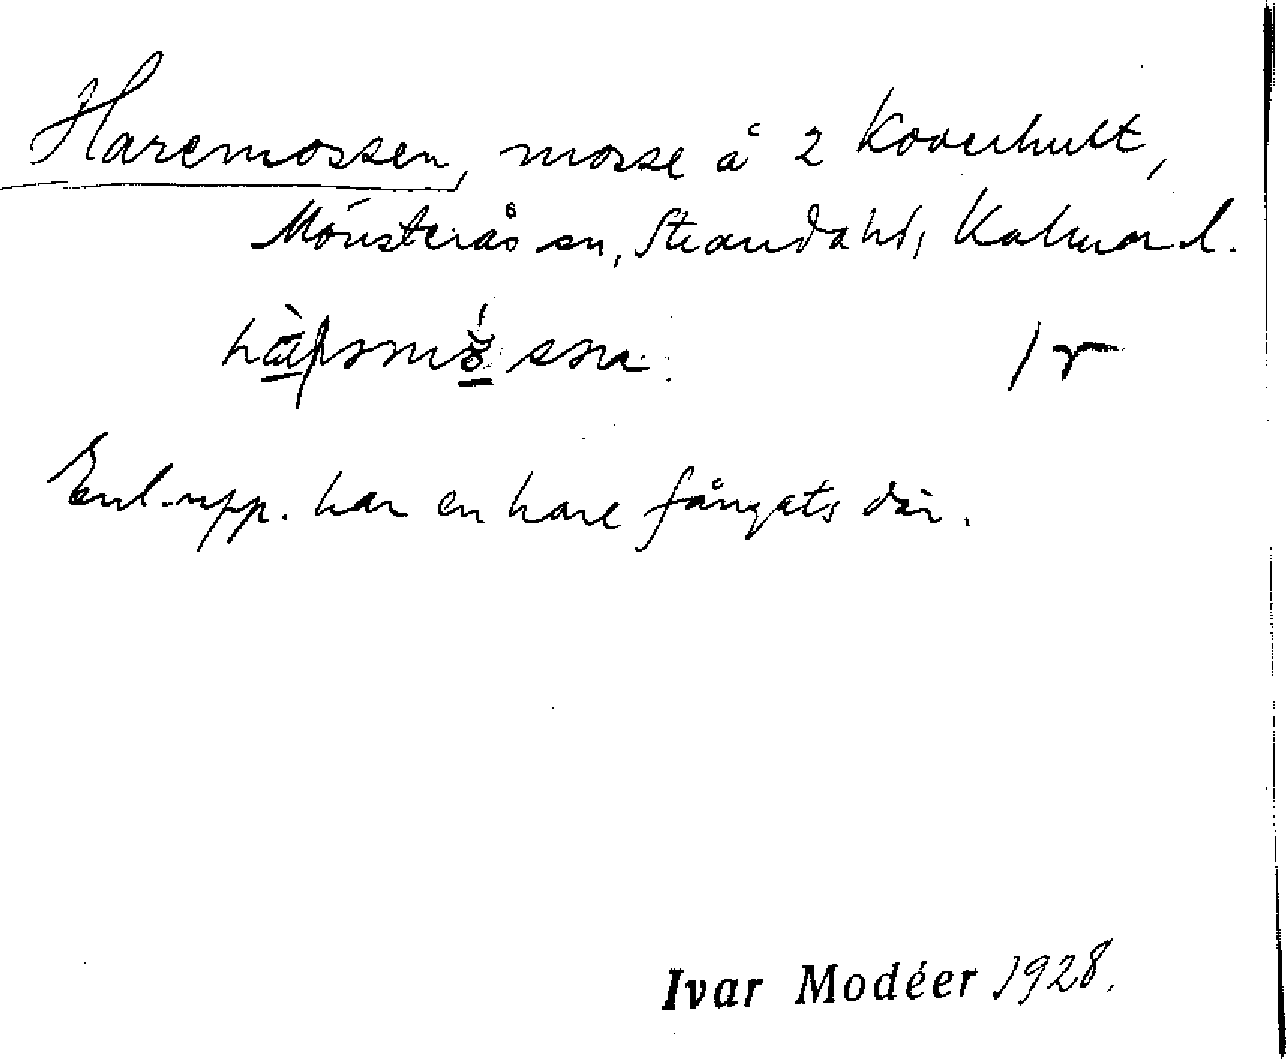 Haremossen, mosse å 2 Koverhult,
Mönsterås sn, Stranda hd, Kalmar l.
1 r
Enl. upp. har en hare fångats där.
Ivar Modéer 1928.